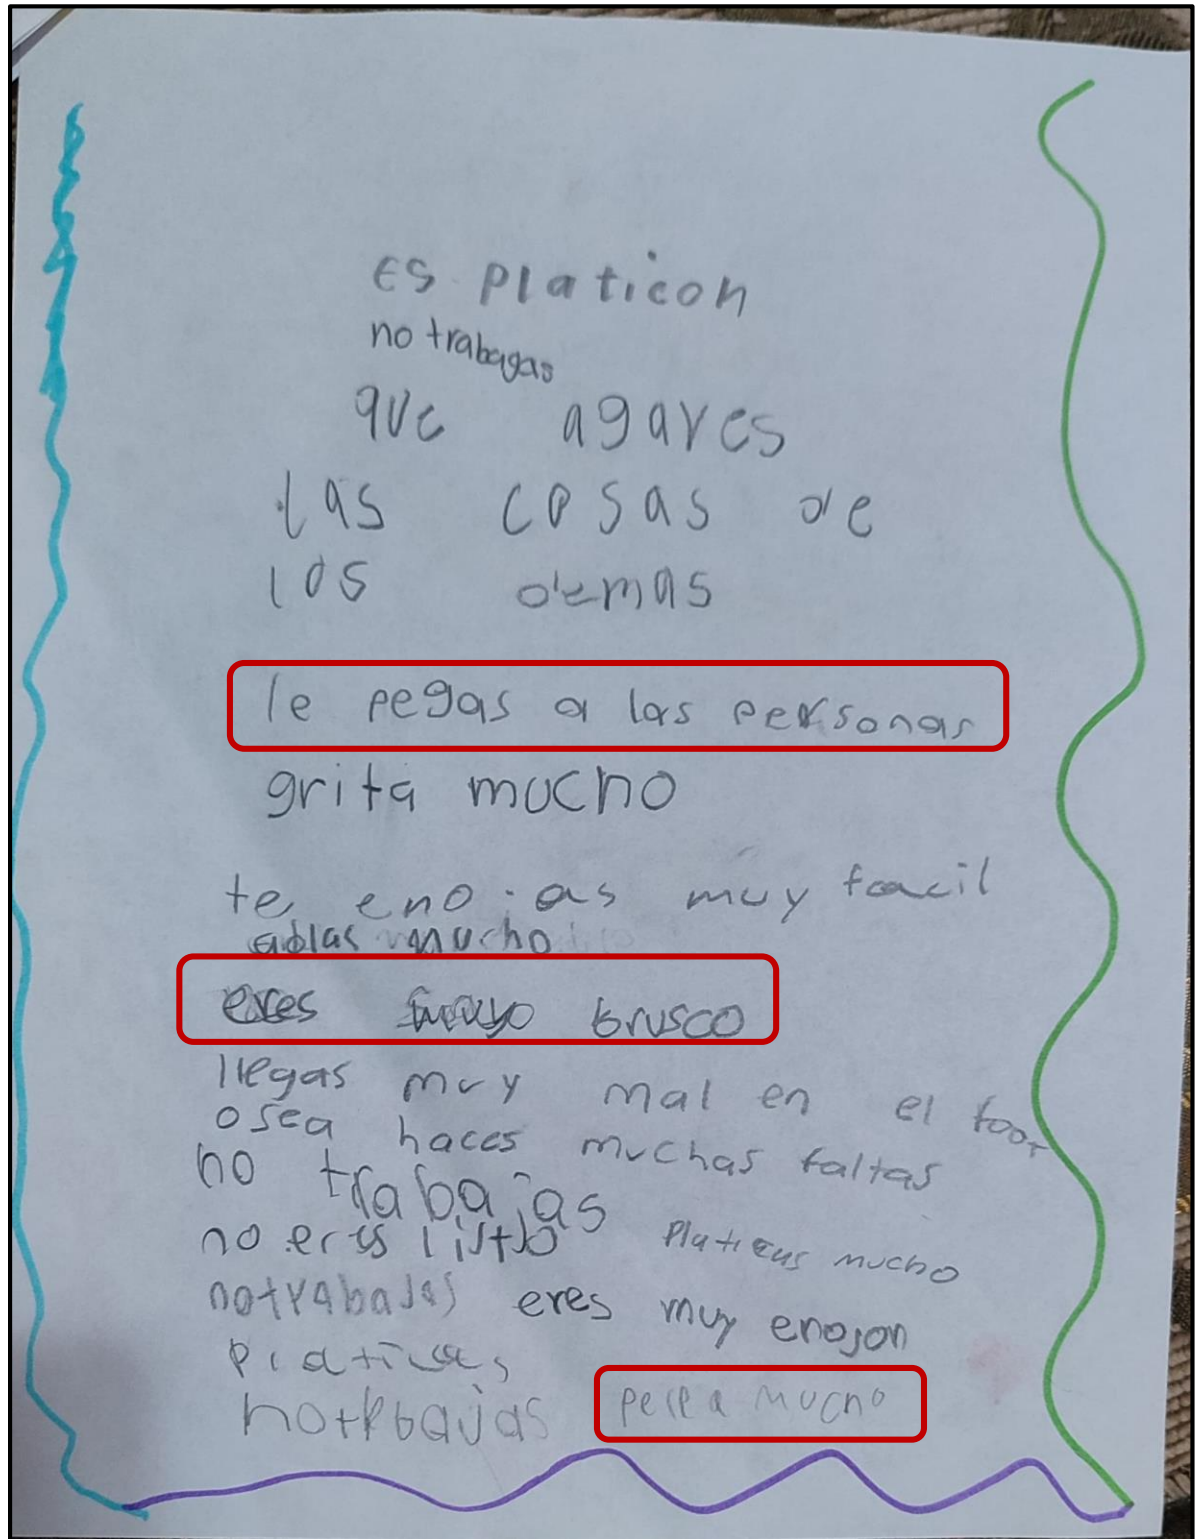 es platicon
no trabagas
que agares
las cosas de
los demas
le pegas a las personas
grita mucho
te enojas muy facil
ablas mucho
eres muyo brusco
llegas muy mal en el foot
osea haces muchas faltas
no trabajas
no eres listo platicas mucho
notrabajas eres muy enojon
platicas
notrbajas pelea mucho